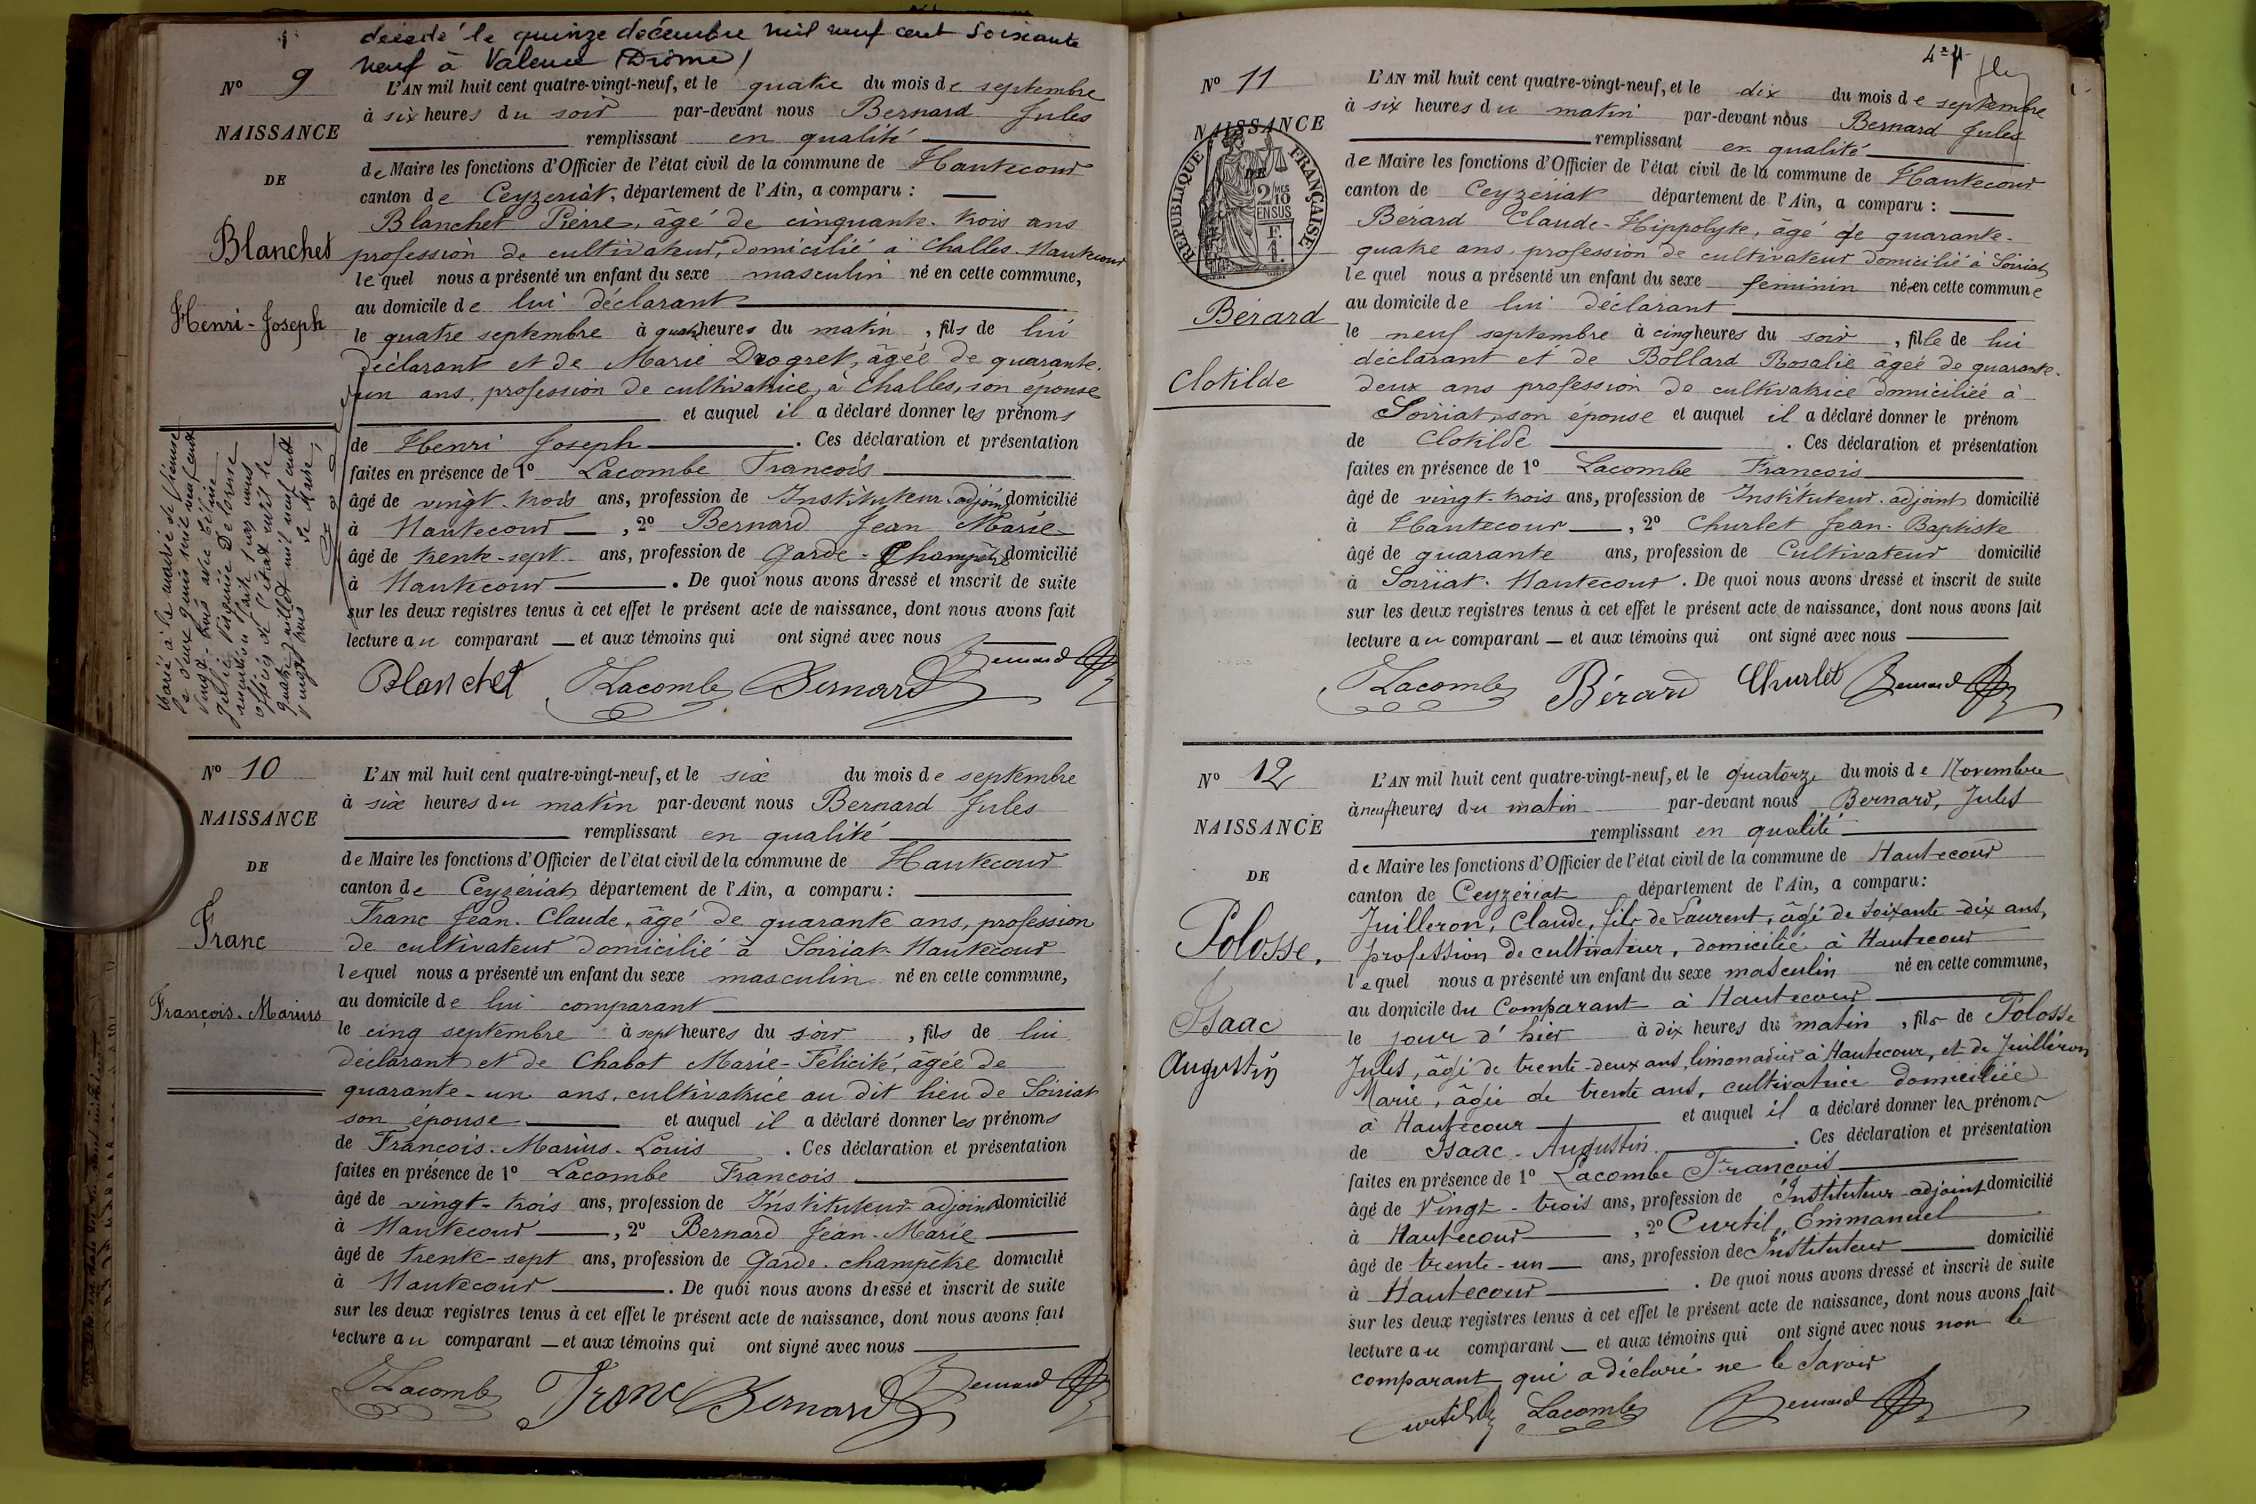 décédé le quinze décembre mil neuf cent soixante
neuf à Valence (Drôme)
N° 9
NAISSANCE
DE
Blanchet
Henri-Joseph
L'AN mil huit cent quatre-vingt-neuf, et le quatre du mois de septembre
à six heures du soir par-devant nous Bernard Jules
remplissant en qualité
de Maire les fonctions d'Officier de l'état civil de la commune de Hautecour
canton de Ceyzériat, département de l'Ain, a comparu :
Blanchet Pierre, âgé de cinquante-trois ans
profession de cultivateur, domicilié à Challes-Hautecour
lequel nous a présenté un enfant du sexe masculin né en cette commune,
au domicile de lui déclarant
le quatre septembre à quatre heures du matin, fils de lui
déclarant et de Marie Drogret, âgée de quarante-
un ans, profession de cultivatrice, à Challes, son épouse
et auquel il a déclaré donner les prénoms
de Henri Joseph. Ces déclaration et présentation
faites en présence de 1° Lacombe François
âgé de vingt-trois ans, profession de Instituteur-adjoint domicilié
à Hautecour, 2° Bernard Jean Marie
âgé de trente-sept ans, profession de Garde-Champêtre domicilié
à Hautecour. De quoi nous avons dressé et inscrit de suite
sur les deux registres tenus à cet effet le présent acte de naissance, dont nous avons fait
lecture au comparant et aux témoins qui ont signé avec nous
Blanchet Lacombe Bernard Bernard
Marié à la mairie de Vienne
le deux juin mil neuf cent
vingt-trois avec
Virginie Delorme
mention faite par nous
officier de l'état civil le
quatre juillet mil neuf cent
vingt trois
N° 10
NAISSANCE
DE
Franc
François-Marius
L'AN mil huit cent quatre-vingt-neuf, et le six du mois de septembre
à six heures du matin par-devant nous Bernard Jules
remplissant en qualité
de Maire les fonctions d'Officier de l'état civil de la commune de Hautecour
canton de Ceyzériat, département de l'Ain, a comparu :
Franc Jean-Claude, âgé de quarante ans, profession
de cultivateur domicilié à Soiriat-Hautecour
lequel nous a présenté un enfant du sexe masculin né en cette commune,
au domicile de lui comparant
le cinq septembre à sept heures du soir, fils de lui
déclarant et de Chabot Marie-Félicité, âgée de
quarante-un ans, cultivatrice au dit lieu de Soiriat
son épouse et auquel il a déclaré donner les prénoms
de François-Marius-Louis. Ces déclaration et présentation
faites en présence de 1° Lacombe François
âgé de vingt-trois ans, profession de Instituteur-adjoint domicilié
à Hautecour, 2° Bernard Jean-Marie
âgé de trente-sept ans, profession de Garde-champêtre domicilié
à Hautecour. De quoi nous avons dressé et inscrit de suite
sur les deux registres tenus à cet effet le présent acte de naissance, dont nous avons fait
lecture au comparant et aux témoins qui ont signé avec nous
Lacombe Franc Bernard Bernard
N° 11
NAISSANCE
DE
RÉPUBLIQUE FRANÇAISE
2/10 MES
EN SUS
F.
1.
Bérard
Clotilde
L'AN mil huit cent quatre-vingt-neuf, et le dix du mois de septembre
à six heures du matin par-devant nous Bernard Jules
remplissant en qualité
de Maire les fonctions d'Officier de l'état civil de la commune de Hautecour
canton de Ceyzériat département de l'Ain, a comparu :
Bérard Claude-Hippolyte, âgé de quarante-
quatre ans, profession de cultivateur domicilié à Soiriat
lequel nous a présenté un enfant du sexe féminin né en cette commune
au domicile de lui déclarant
le neuf septembre à cinq heures du soir, fille de lui
déclarant et de Bollard Rosalie âgée de quarante-
deux ans profession de cultivatrice domiciliée à
Soiriat, son épouse et auquel il a déclaré donner le prénom
de Clotilde. Ces déclaration et présentation
faites en présence de 1° Lacombe François
âgé de vingt-trois ans, profession de Instituteur-adjoint domicilié
à Hautecour, 2° Churlet Jean-Baptiste
âgé de quarante ans, profession de Cultivateur domicilié
à Soiriat-Hautecour. De quoi nous avons dressé et inscrit de suite
sur les deux registres tenus à cet effet le présent acte de naissance, dont nous avons fait
lecture au comparant et aux témoins qui ont signé avec nous
Lacombe Bérard Churlet Bernard
N° 12
NAISSANCE
DE
Polosse.
Isaac
Augustin
L'AN mil huit cent quatre-vingt-neuf, et le quatorze du mois de Novembre
à neuf heures du matin par-devant nous Bernard, Jules
remplissant en qualité
de Maire les fonctions d'Officier de l'état civil de la commune de Hautecour
canton de Ceyzériat département de l'Ain, a comparu :
Juilleron, Claude, fils de Laurent, âgé de soixante-dix ans,
profession de cultivateur, domicilié à Hautecour
lequel nous a présenté un enfant du sexe masculin né en cette commune,
au domicile du Comparant à Hautecour
le jour d'hier à dix heures du matin, fils de Polosse
Jules, âgé de trente-deux ans, limonadier à Hautecour, et de Juilleron
Marie, âgée de trente ans, cultivatrice domiciliée
à Hautecour et auquel il a déclaré donner les prénoms
de Isaac-Augustin. Ces déclaration et présentation
faites en présence de 1° Lacombe François
âgé de Vingt-trois ans, profession de Instituteur-adjoint domicilié
à Hautecour, 2° Curtil, Emmanuel
âgé de trente-un ans, profession de Instituteur domicilié
à Hautecour. De quoi nous avons dressé et inscrit de suite
sur les deux registres tenus à cet effet le présent acte de naissance, dont nous avons fait
lecture au comparant et aux témoins qui ont signé avec nous non le
comparant qui a déclaré ne le savoir
Curtil Lacombe Bernard